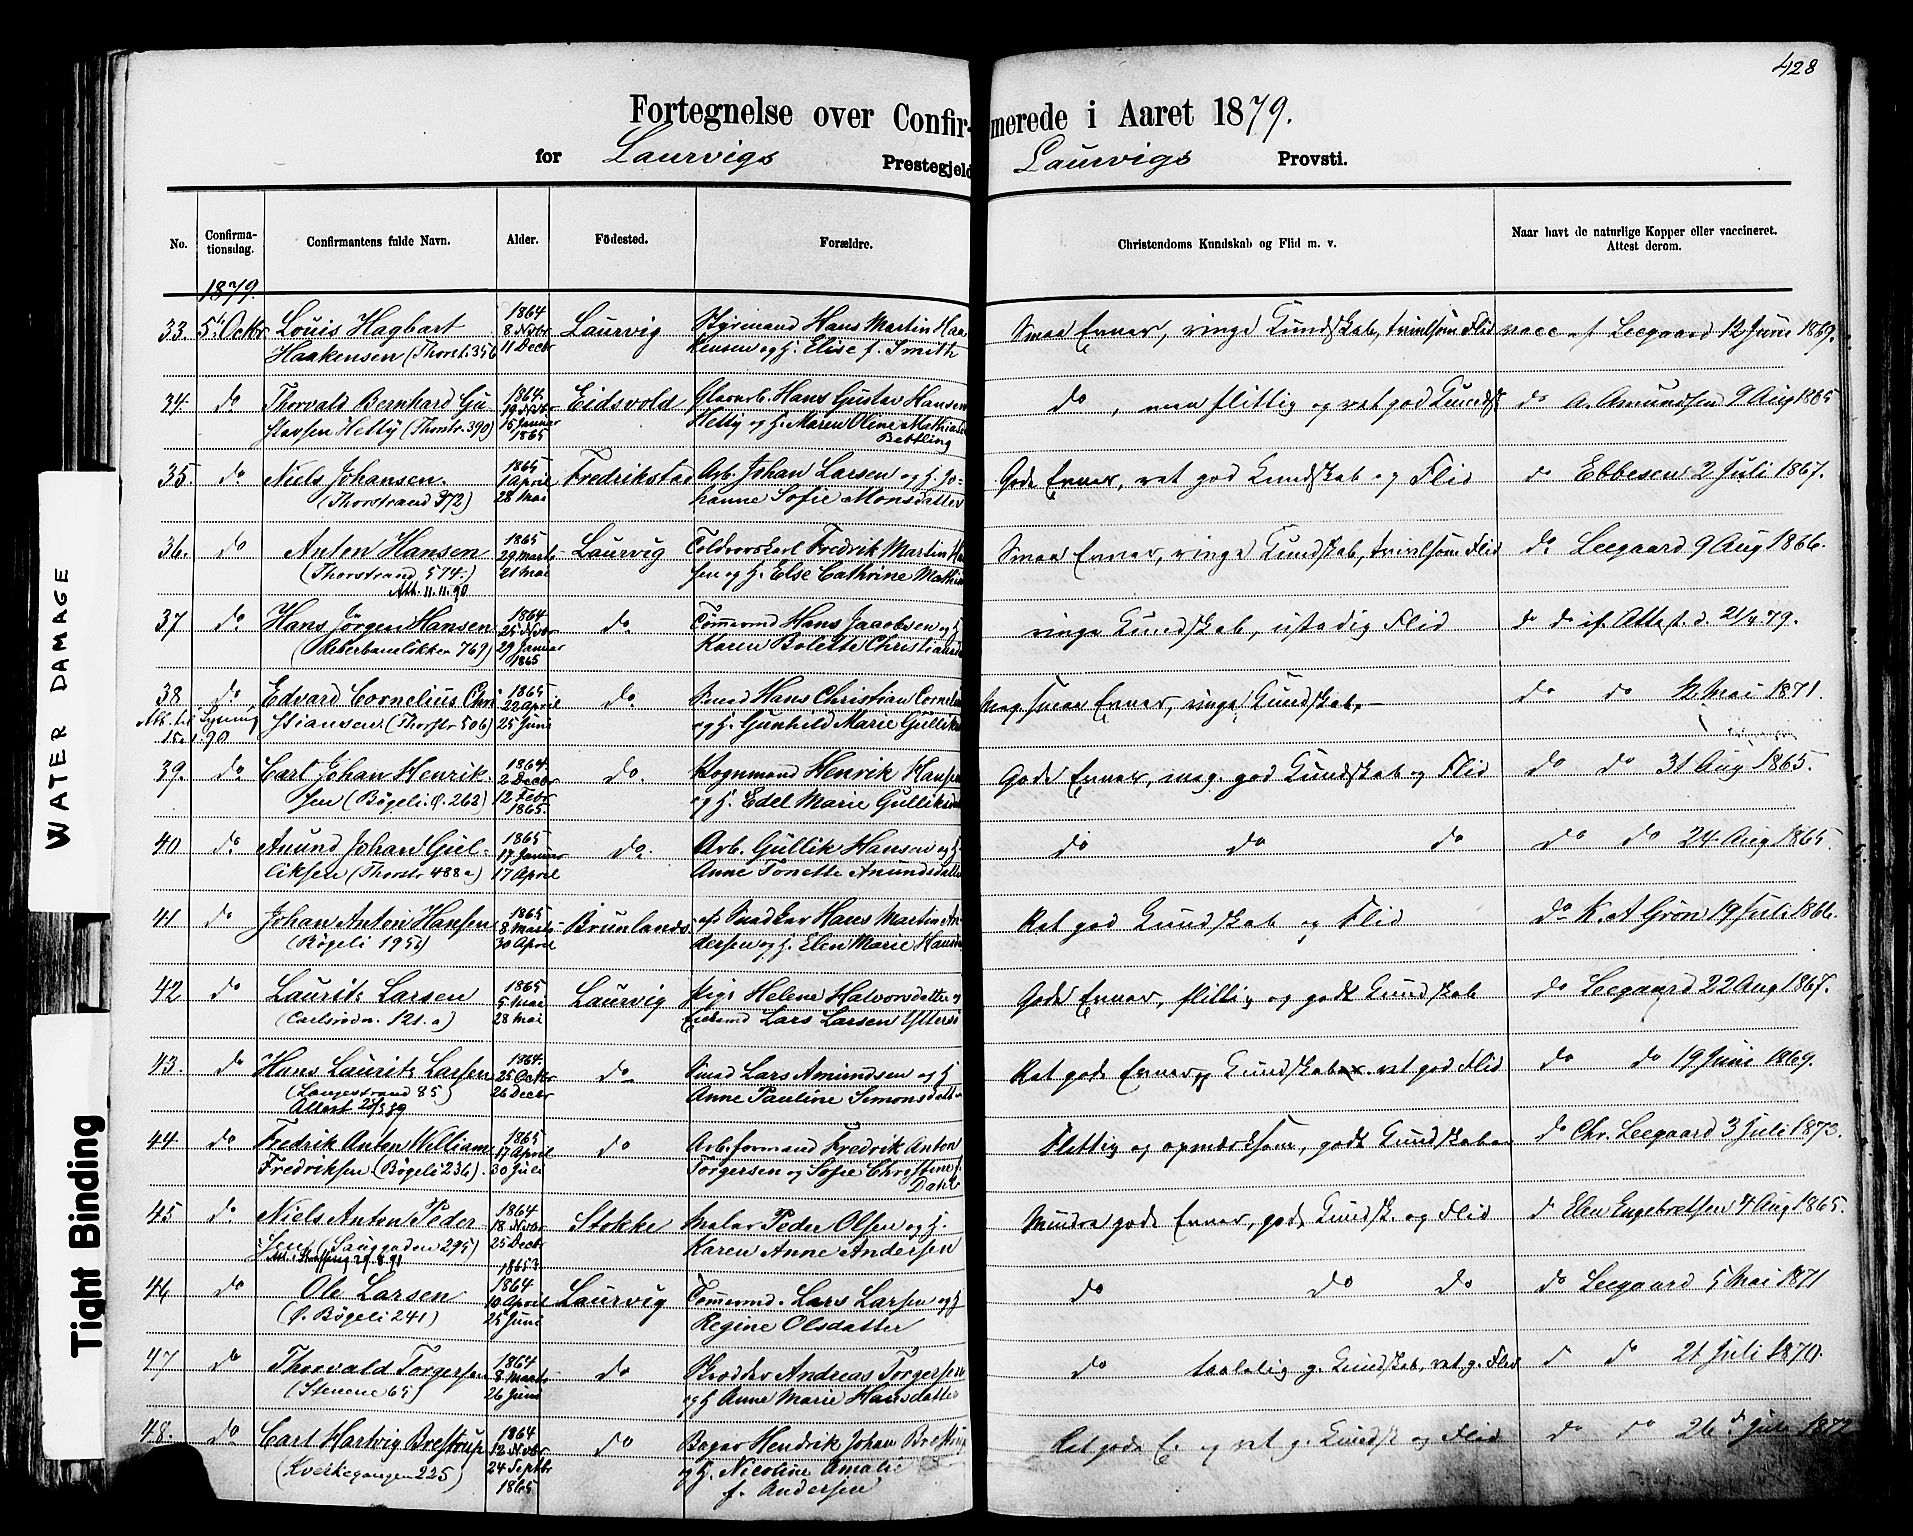 428
Fortegnelse over Confirmerede i Aaret 1879.
for Laurvigs Prestegjeld Laurvigs Provsti.
No. Confirmationsdag. Confirmantens fulde Navn. Alder. Födested. Forældre. Christendoms Kundskab og Flid m. v. Naar havt de naturlige Kopper eller vaccineret. Attest derom.
1879.
33. 5t Octbr Louis Hagbart 1864 8 Novbr Laurvig Styrmand Hans Martin Haa Smaa Evner, ringe Kundskab, tvivlsom Flid vacc af Leegaard 12 Juni 1869.
Haakensen (Thorst. 356 11 Decbr kensen og H. Elise f. Smith
34. do Thorvald Bernhard Gu 1864. 19 Novbr Eidsvold Glasarb. Hans Gustav Hansen do, men flittig og ret god Kundsk do A. Amundsen 9 Aug 1865
stavsen Hetty (Thorstr. 390) 15 Januar 1865 Hetty og H. Maren Oline Mathias
35. do Niels Johansen. 1865 1 April Fredrikstad Arb. Johan Larsen og H. Jo- Gode Evner, ret god Kundskab og Flid do Ebbesen 2 Juli 1867.
(Thorstrand 372) 28 Mai hanne Sofie Monsdatter
36. do Anton Hansen 1865 29 Marts Laurvig Toldvorskarl Fredrik Martin Han Smaa Evner, ringe Kundskab, tvivlsom Flid do Leegaard 9 Aug 1866.
(Thorstrand 574.) 21 Mai sen og H. Else Cathrine Mathia
Att. 11.11.90
37 do Hans Jörgen Hansen 1864 25 Novbr do. Tømmermd Hans Jacobsen og H ringe Kundskab, ustadig Flid do do if. Attest. d. 21/4 79.
(Reberbaneløkken 769) 29 Januar 1865 Karen Bolette Christians
38 do Edvard Cornelius Chri 1865 22 April do. Smed Hans Christian Corneliu Meg. smaa Evner, ringe Kundskab. do do 12 Mai 1871.
15. 1. 90 stiansen (Thorstr 506) 25 Juni og H. Gunhild Marie Gullik
39. do Carl Johan Henrik- 1864. 2 Decbr do. Vognmand Henrik Hansen Gode Evner, meg. god Kundskab og Flid do do 31 Aug 1865.
sen (Bögeli Ø. 262) 12 Febr 1865. og H. Edel Marie Gulliks
40 do Anund Johan Gul- 1865 17 Januar do. Arb. Gullik Hansen og H. do do do do do 24 Aug 1865.
liksen (Thorstr 488a) 17 April Anne Tonette Anundsdatte
41 do Johan Anton Hansen 1865 8 Marts Brunlands afd Snedker Hans Martin An Ret god Kundskab og Flid do K. A Grøn 19 Juli 1866.
(Bögeli 195) 30 April dersen og H. Elen Marie Hans
42 do Laurits Larsen 1865 5 Mai Laurvig Pige Helene Halvorsdatter og Gode Evner, flittig og gode Kundskab do Leegaard 22 Aug 1867.
(Carlsrödn. 121.a) 28 Mai Lars Larsen
43. do Hans Laurits Larsen 1864. 25 Octbr do Smed Lars Amundsen og H. Ret gode Evner og Kundskaber ret god Flid do do 19 Juni 1869.
(Langestrand 85) 26 Decbr Anne Pauline Simonsdatte
44. do Fredrik Anton William 1865 17 April do Arbeformand Fredrik Anton Flittig og opmærksom, gode Kundskaber do Chr. Leegaard 3 Juli 1873.
Fredriksen (Bögeli 236) 30 Juli Torgersen og Sofie Christine f. Dahl
45 do Niels Anton Peder 1864 18 Novbr Stokke Maler Peder Olsen og H. Mindre gode Evner, gode Kundsk. og Flid do Elen Engebretsen 4 Aug 1865.
sen (Langgaden 295) 25 Decbr Karen Anne Andersen
46 do Ole Larsen 1864 10 April Laurvig Tømmermd. Lars Larsen og H do do do do Leegaard 5 Mai 1871
(Ø. Bögeli 241) 25 Juni Regine Olsdatter
47 do Thorvald Torgersen 1864 8 Marts do Andreas Torgersen do taalelig g. Kundskab, ret g. Flid do do 21 Juli 1870.
(Stenene 65) 26 Juni og H Anne Marie Hansdatter
48. do Carl Hartvig Brestrup 1864 12 Novbr do Bager Hendrik Johan Brestrup Ret gode E. og ret g. Kundsk og Flid do do 26 Juli
(Kverkegangen 225) 24 Septbr 1865 og H. Nicoline Amalie
f. Andersen
WATER DAMAGE
Tight Binding